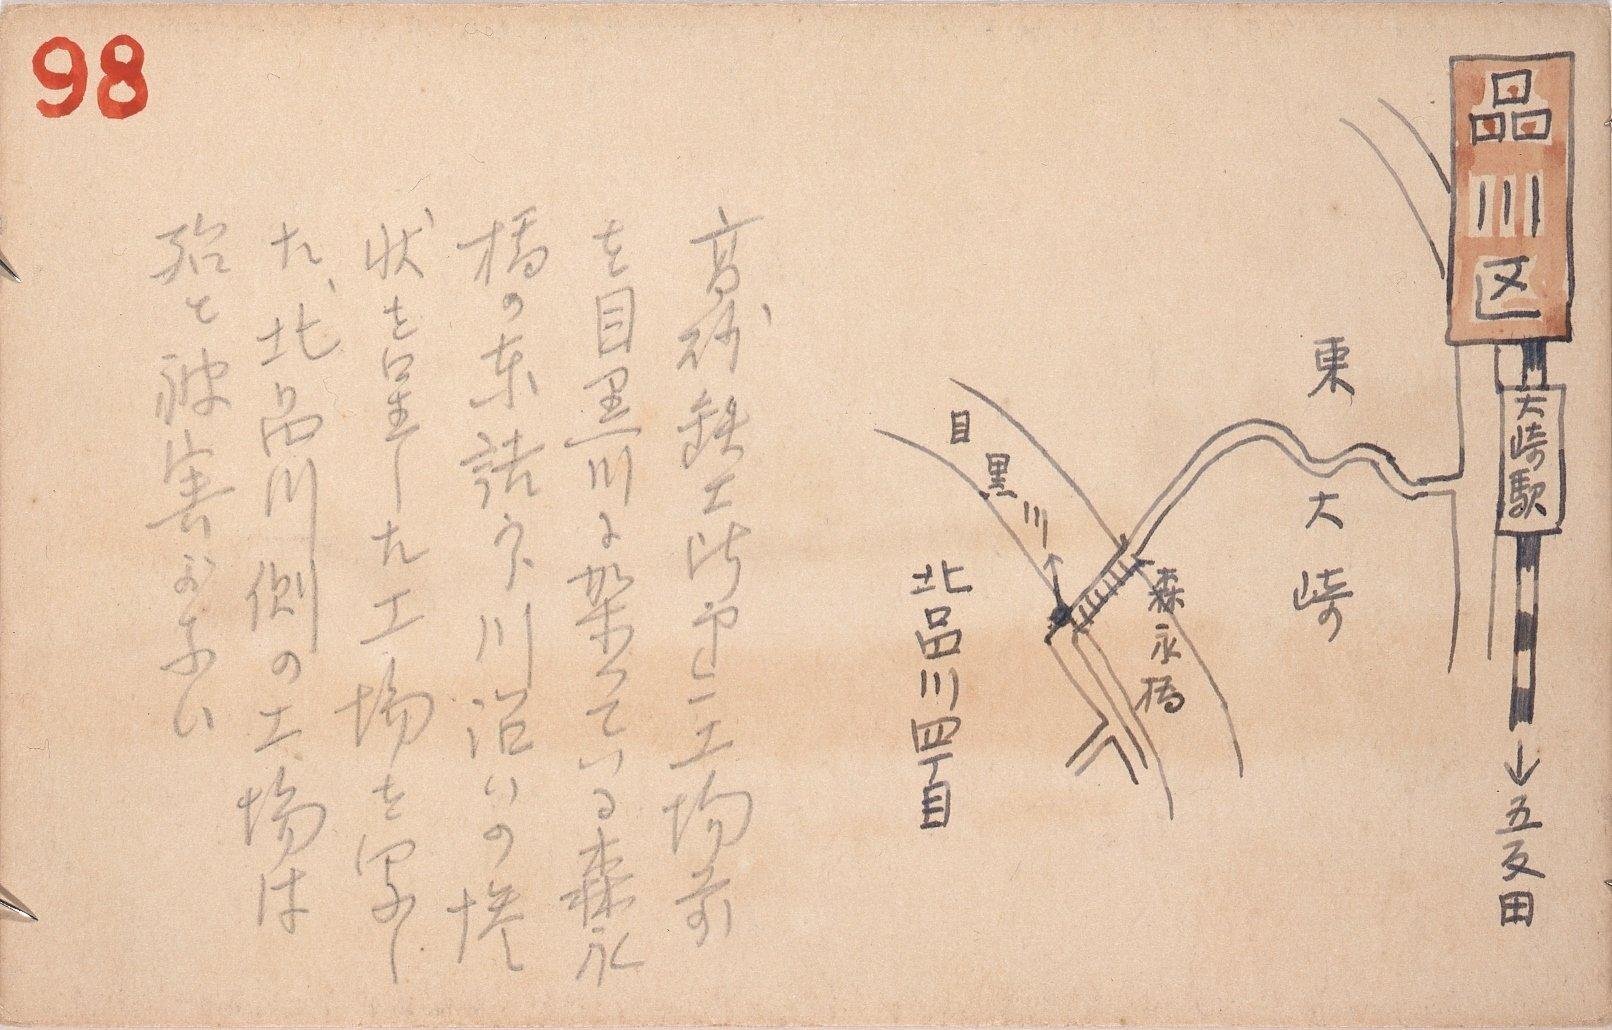 98
品川区
大崎駅
↓五反田
東大崎
森永橋
目黒川
北品川四丁目
高砂鉄工 工場前
を目黒川に架っている森永
橋の東詰 川沿いの惨
状を呈した工場を写し
た、北品川側の工場は
殆と被害がない